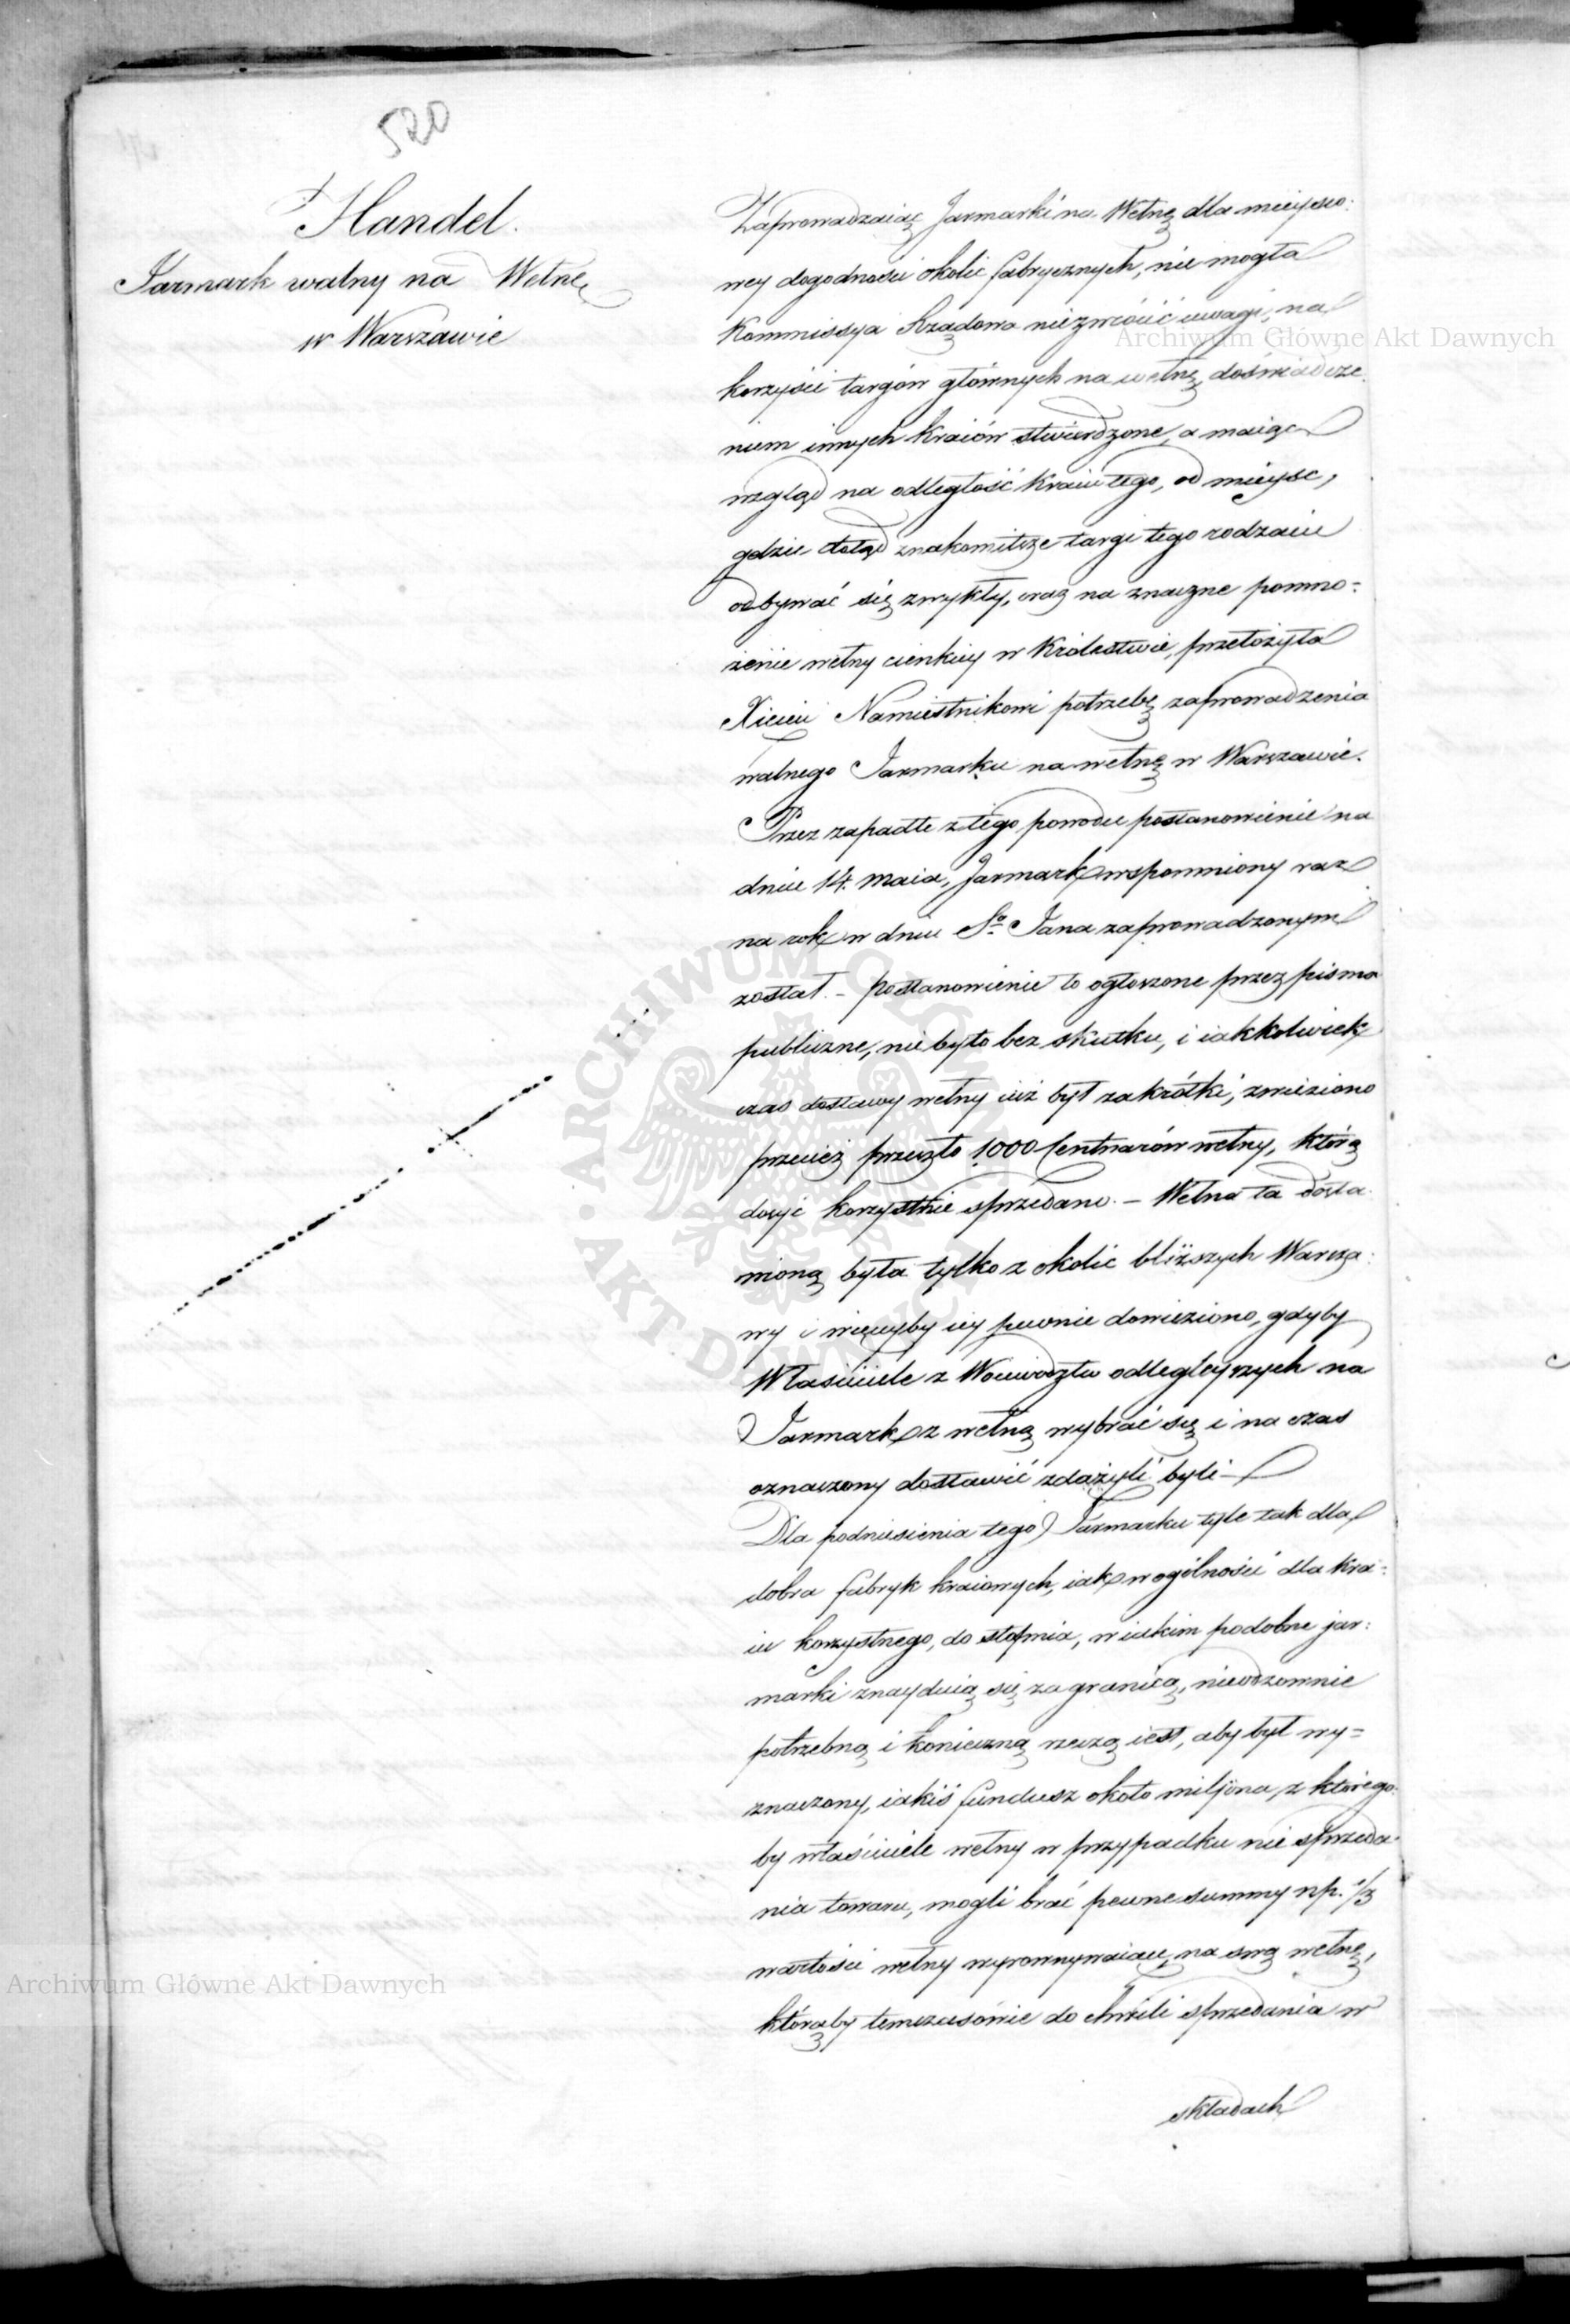 520
Handel.
Jarmark walny na Wełnę
w Warszawie
Zaprowadzaiąc Jarmarki na Wełnę dla mieysco:
wey dogodności okolic fabrycznych, nie mogła
Kommissya Rządowa niezwrócić uwagi, na
korzyści targów głównych na wełnę, doświadcze
niem innych kraiów stwierdzone, a maiąc
wzgląd na odległość kraiu tego, od mieysc,
gdzie dotąd znakomitsze targi tego rodzaiu
odbywać się zwykły, oraz na znaczne pomno=
żenie wełny cienkiey w Królestwie, przełożyła
Xięciu Namiestnikowi potrzebę zaprowadzenia
walnego Jarmarku na wełnę w Warszawie.
Przez zapadłe z tego powodu postanowienie na
dniu 14. Maia, Jarmark wspomniony raz
na rok w dniu So. Jana zaprowadzonym
został. – postanowienie to ogłoszone przez pisma
publiczne, nie było bez skutku, i iakkolwiek
czas dostawy wełny iuż był zakrótki, zwieziono
przecież przeszło 1000 Centnarów wełny, którą
dosyć korzystnie sprzedano. – Wełna ta dosta
wioną była tylko z okolic bliższych Warsza:
wy i więceyby iey pewnie dowieziono, gdyby
Właściciele z Woiewództw odlegleyszych na
Jarmark z wełną wybrać się i na czas
oznaczony dostawić zdążyli byli –
Dla podniesienia tego Jarmarku tyle tak dla
dobra fabryk kraiowych, iak w ogólności dla kra=
iu korzystnego, do stopnia, w iakim podobne jar:
marki znayduią się za granicą, nieodzownie
potrzebną i konieczną rzeczą iest, aby był wy=
znaczony, iakiś fundusz około miljona, z którego:
by właściciele wełny w przypadku nie sprzeda
nia towaru, mogli brać pewne summy np. 1/3
wartości wełny wyrównywaiące, na swą wełnę,
któraby temczasowie do chwili sprzedania w
składach
Archiwum Główne Akt Dawnych
Archiwum Główne Akt Dawnych
ARCHIWUM GŁÓWNE · AKT DAWNYCH ·